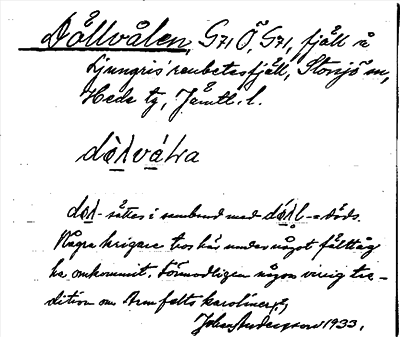 Dållvålen, G71 Ö, G71, fjäll å
Ljungris' renbetesfjäll, Storsjö sn,
Hede tg, Jämtl. l.
dòlválra
dol- sättes i samband med dól- = döds.
Några krigare tros här under något fälttåg
ha omkommit. Förmodligen någon vinig tra-
dition om Armfelts karoliner(?)
Johan Andersson 1933.